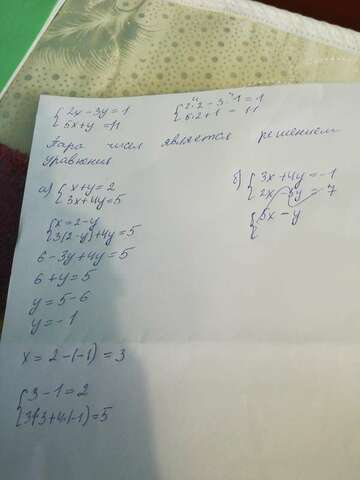 {2x - 3y = 1
{5x + y = 11
{2·2 - 3·1 = 1
{5·2 + 1 = 11
Пара чисел является решением
уравнения
а) {x + y = 2
{3x + 4y = 5
{x = 2 - y
{3(2 - y) + 4y = 5
6 - 3y + 4y = 5
6 + y = 5
y = 5 - 6
y = -1
x = 2 - (-1) = 3
{3 - 1 = 2
{3·3 + 4·(-1) = 5
б) {3x + 4y = -1
{2x - 5y = 7
{5x - y